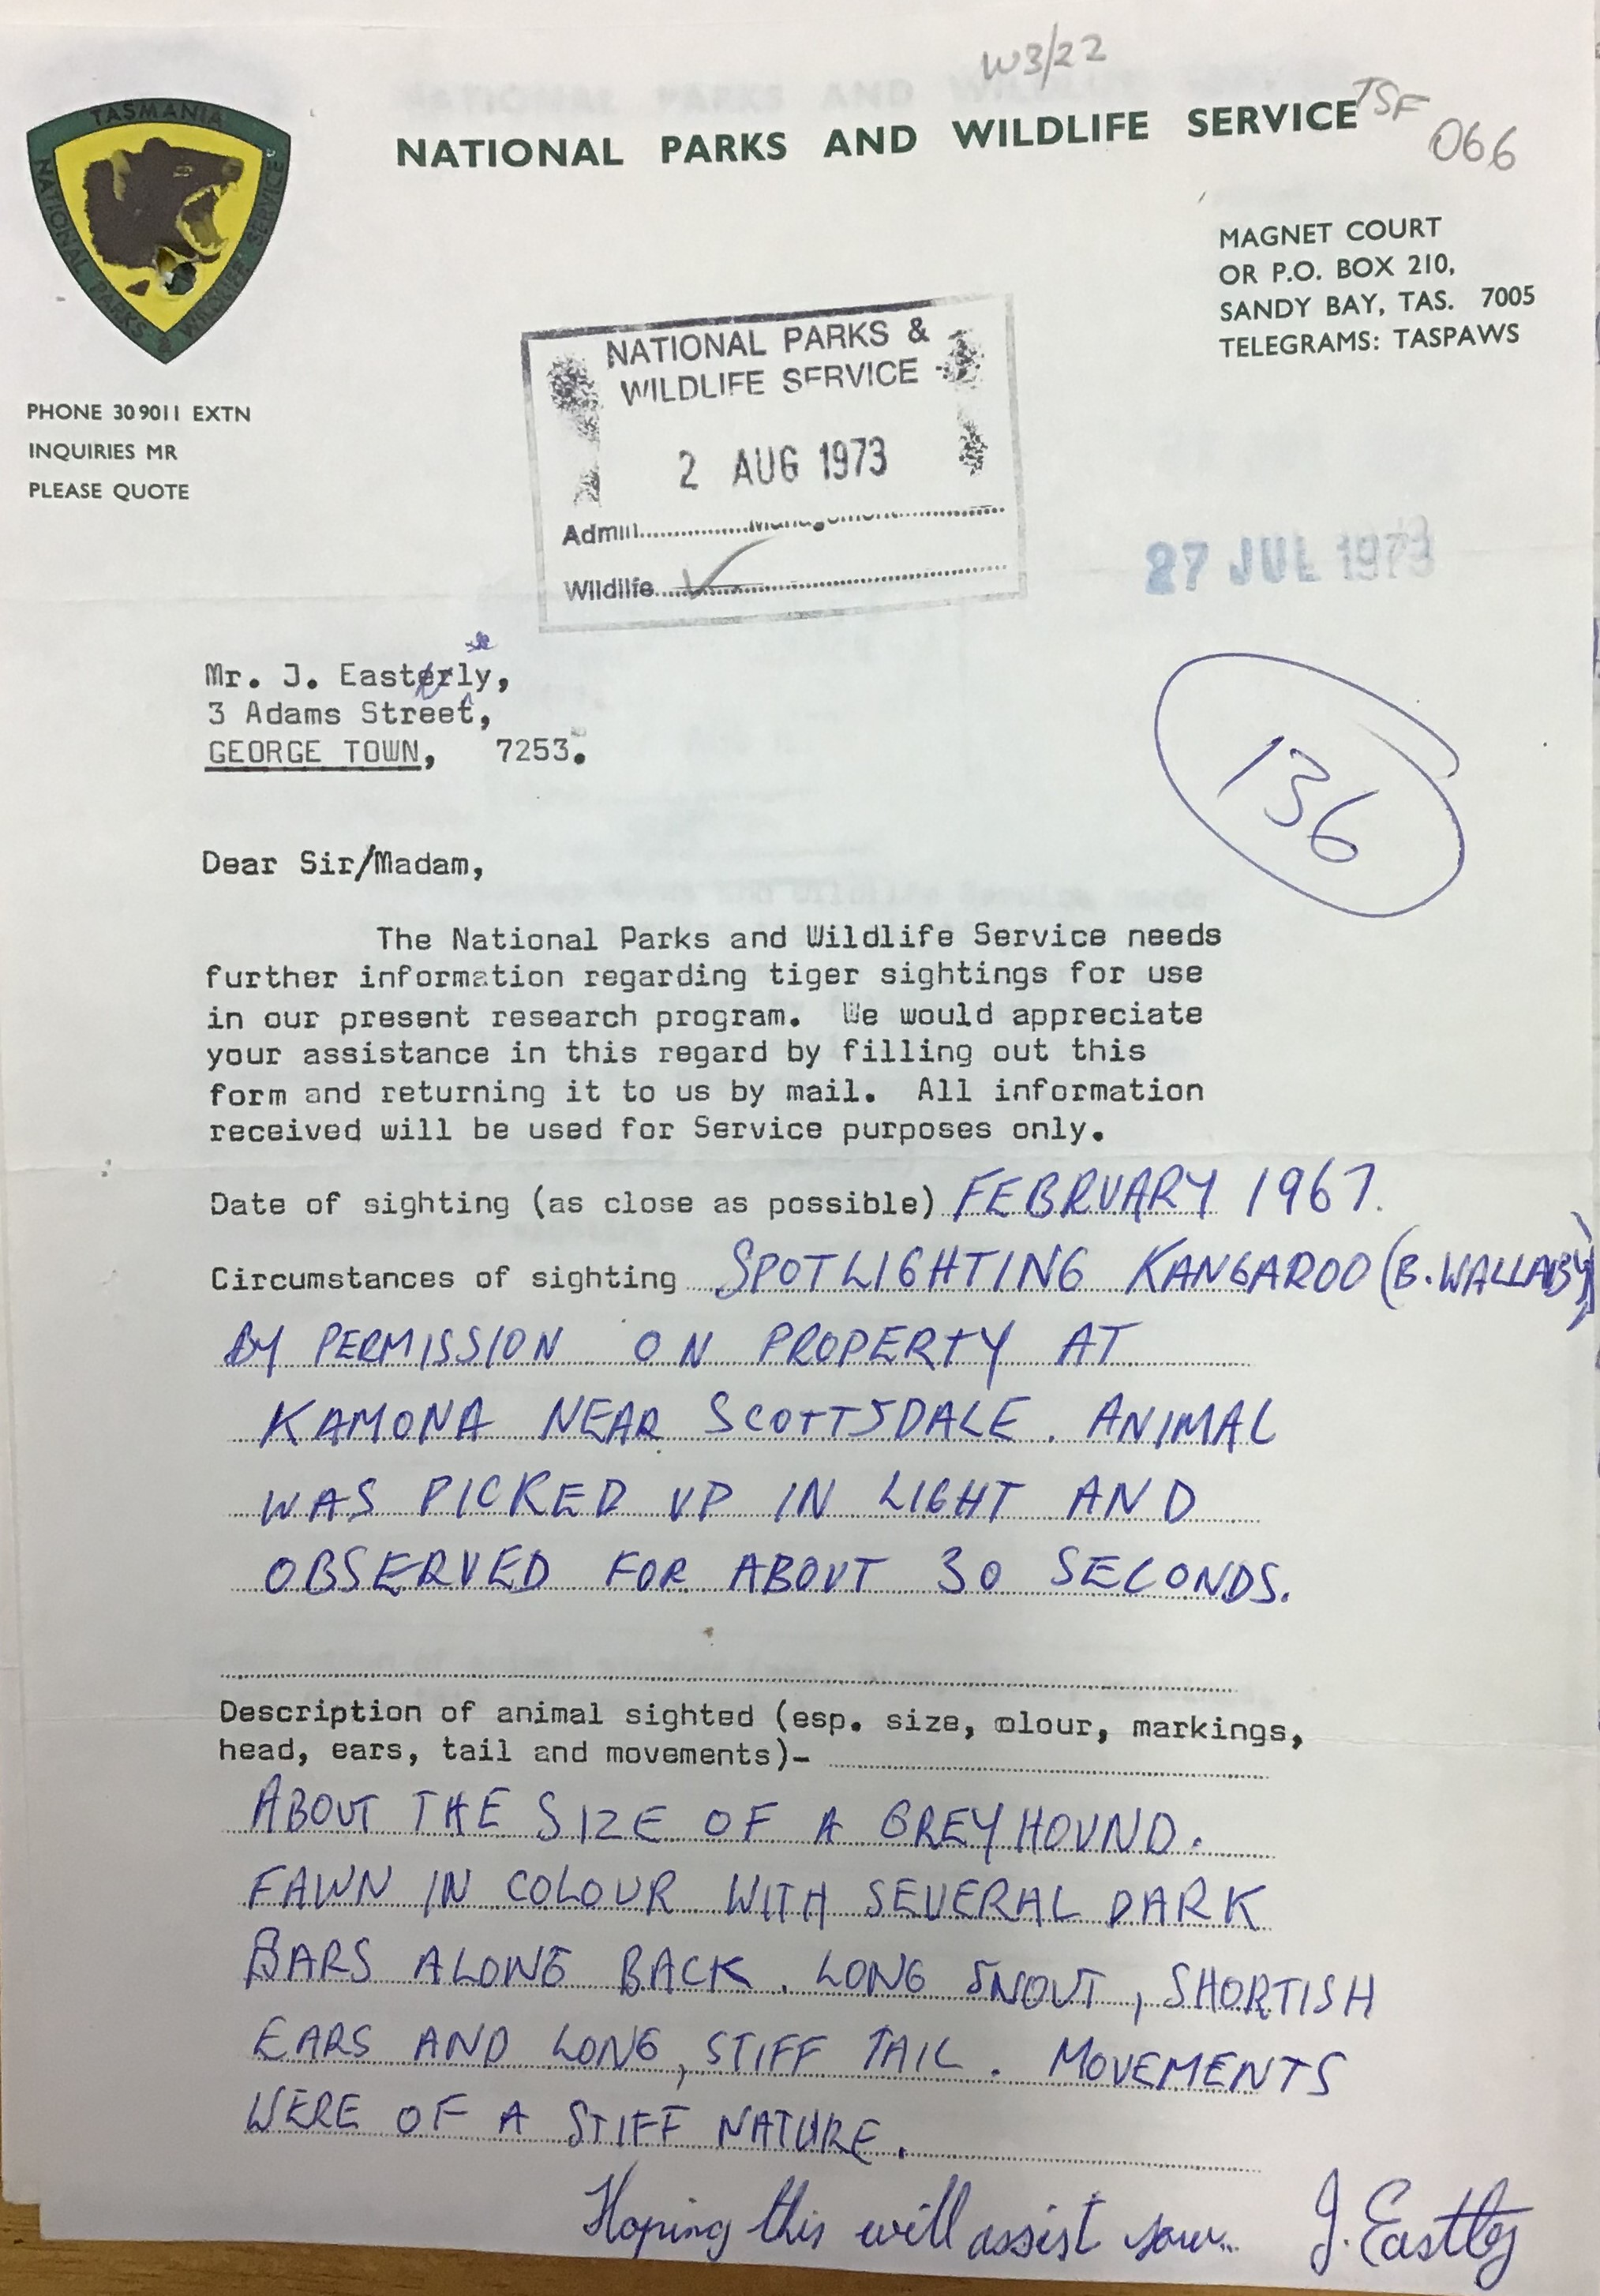 W3/22
TSF
066
TASMANIA
NATIONAL PARKS & WILDLIFE SERVICE
NATIONAL PARKS AND WILDLIFE SERVICE
MAGNET COURT
OR P.O. BOX 210,
SANDY BAY, TAS. 7005
TELEGRAMS: TASPAWS
PHONE 30 9011 EXTN
INQUIRIES MR
PLEASE QUOTE
NATIONAL PARKS &
WILDLIFE SERVICE
2 AUG 1973
Admin..........Management..........
Wildlife..........
27 JUL 1973
Mr. J. Easterly,
3 Adams Street,
GEORGE TOWN, 7253.
136
Dear Sir/Madam,
The National Parks and Wildlife Service needs
further information regarding tiger sightings for use
in our present research program. We would appreciate
your assistance in this regard by filling out this
form and returning it to us by mail. All information
received will be used for Service purposes only.
Date of sighting (as close as possible) FEBRUARY 1967.
Circumstances of sighting SPOTLIGHTING KANGAROO (B. WALLABY)
BY PERMISSION ON PROPERTY AT
KAMONA NEAR SCOTTSDALE. ANIMAL
WAS PICKED UP IN LIGHT AND
OBSERVED FOR ABOUT 30 SECONDS.
Description of animal sighted (esp. size, colour, markings,
head, ears, tail and movements)-
ABOUT THE SIZE OF A GREYHOUND.
FAWN IN COLOUR WITH SEVERAL DARK
BARS ALONG BACK. LONG SNOUT, SHORTISH
EARS AND LONG, STIFF TAIL. MOVEMENTS
WERE OF A STIFF NATURE.
Hoping this will assist you.. J. Eastley